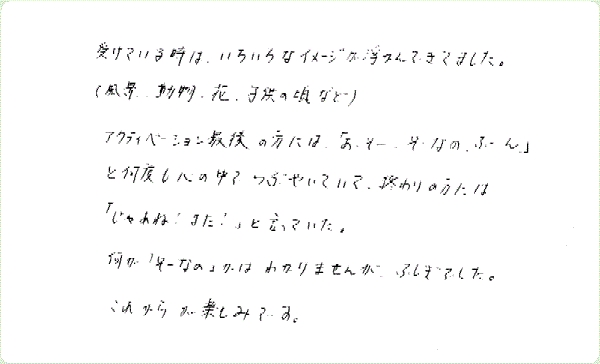 受けている時は、いろいろなイメージが浮かんできてました。
(風景、動物、花、子供の頃など)
アクティベーション最後の方には、「あ、そー、そーなの、ふーん」
と何度も心の中でつぶやいていて、終わりの方には
「じゃあね!また!」と言っていた。
何が「そーなの」かはわかりませんが、ふしぎでした。
これからが楽しみです。